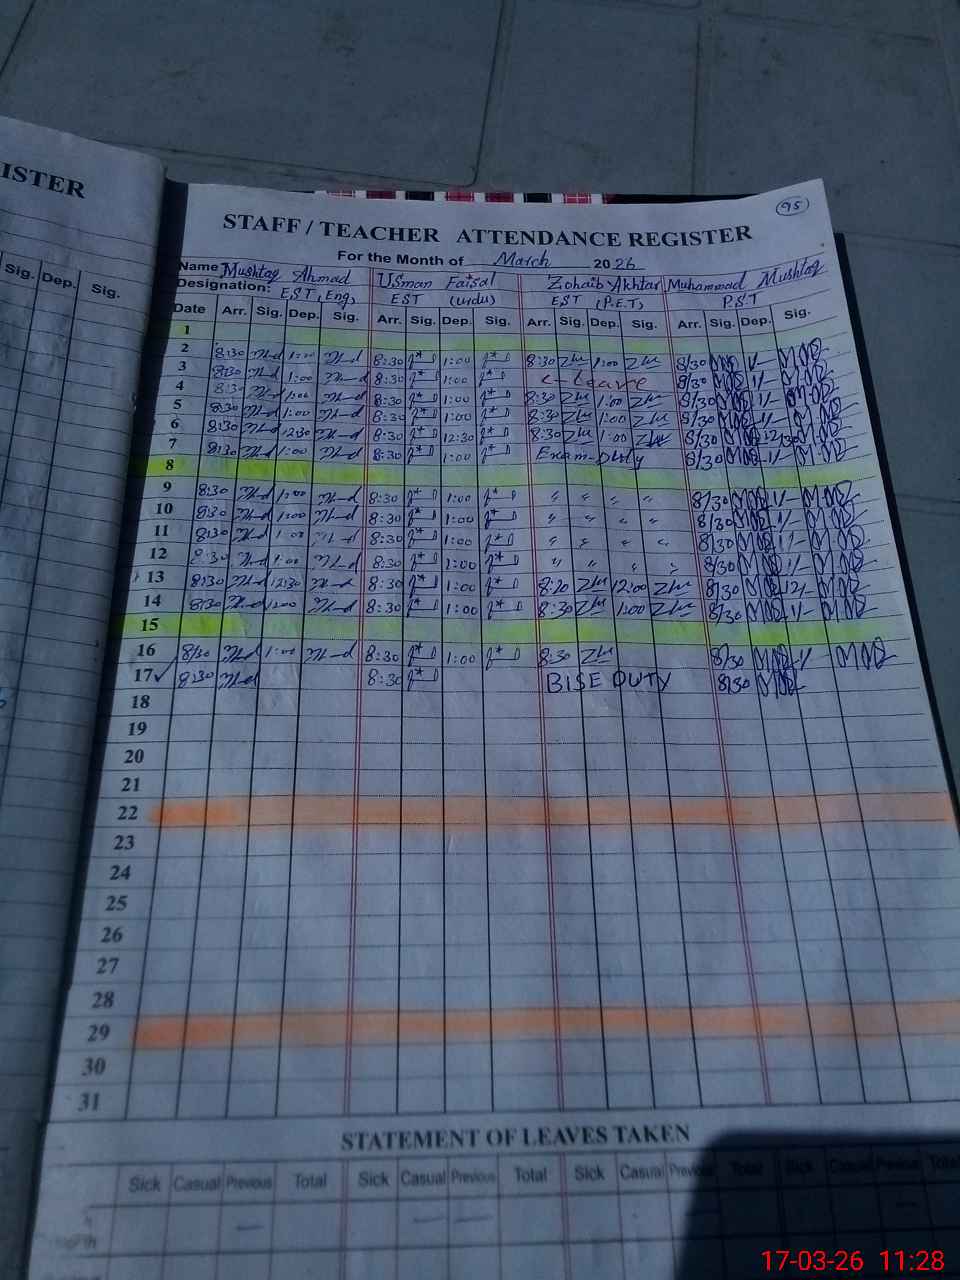 ISTER
Sig. Dep. Sig.
95
STAFF / TEACHER ATTENDANCE REGISTER
For the Month of March 2026
Name Mushtaq Ahmad Usman Faisal Zohaib Akhtar Muhammad Mushtaq
Designation: EST (Eng) EST (urdu) EST (P.E.T) P.S.T
Date Arr. Sig. Dep. Sig. Arr. Sig. Dep. Sig. Arr. Sig. Dep. Sig. Arr. Sig. Dep. Sig.
1
2 8:30 1:00 8:30 1:00 8:30 1:00 8/30 1/-
3 8:30 1:00 8:30 1:00 c-Leave 8/30 1/-
4 8:30 1:00 8:30 1:00 8:30 1:00 8/30 1/-
5 8:30 1:00 8:30 1:00 8:30 1:00 8/30 1/-
6 8:30 12:30 8:30 12:30 8:30 1:00 8/30 12/30
7 8:30 1:00 8:30 1:00 Exam-Duty 8/30 1/-
8
9 8:30 1:00 8:30 1:00 " " " " 8/30 1/-
10 8:30 1:00 8:30 1:00 " " " " 8/30 1/-
11 8:30 1:00 8:30 1:00 " " " " 8/30 1/-
12 8:30 1:00 8:30 1:00 " " " " 8/30 1/-
13 8:30 12:30 8:30 1:00 8:20 12:00 8/30 12/-
14 8:30 1:00 8:30 1:00 8:30 1:00 8/30 1/-
15
16 8/30 1:00 8:30 1:00 8:30 8/30 1/-
17 ✓ 8:30 8:30 BISE DUTY 8/30
18
19
20
21
22
23
24
25
26
27
28
29
30
31
STATEMENT OF LEAVES TAKEN
Sick Casual Previous Total Sick Casual Previous Total Sick Casual Previous Total Sick Casual Previous Total
17-03-26 11:28